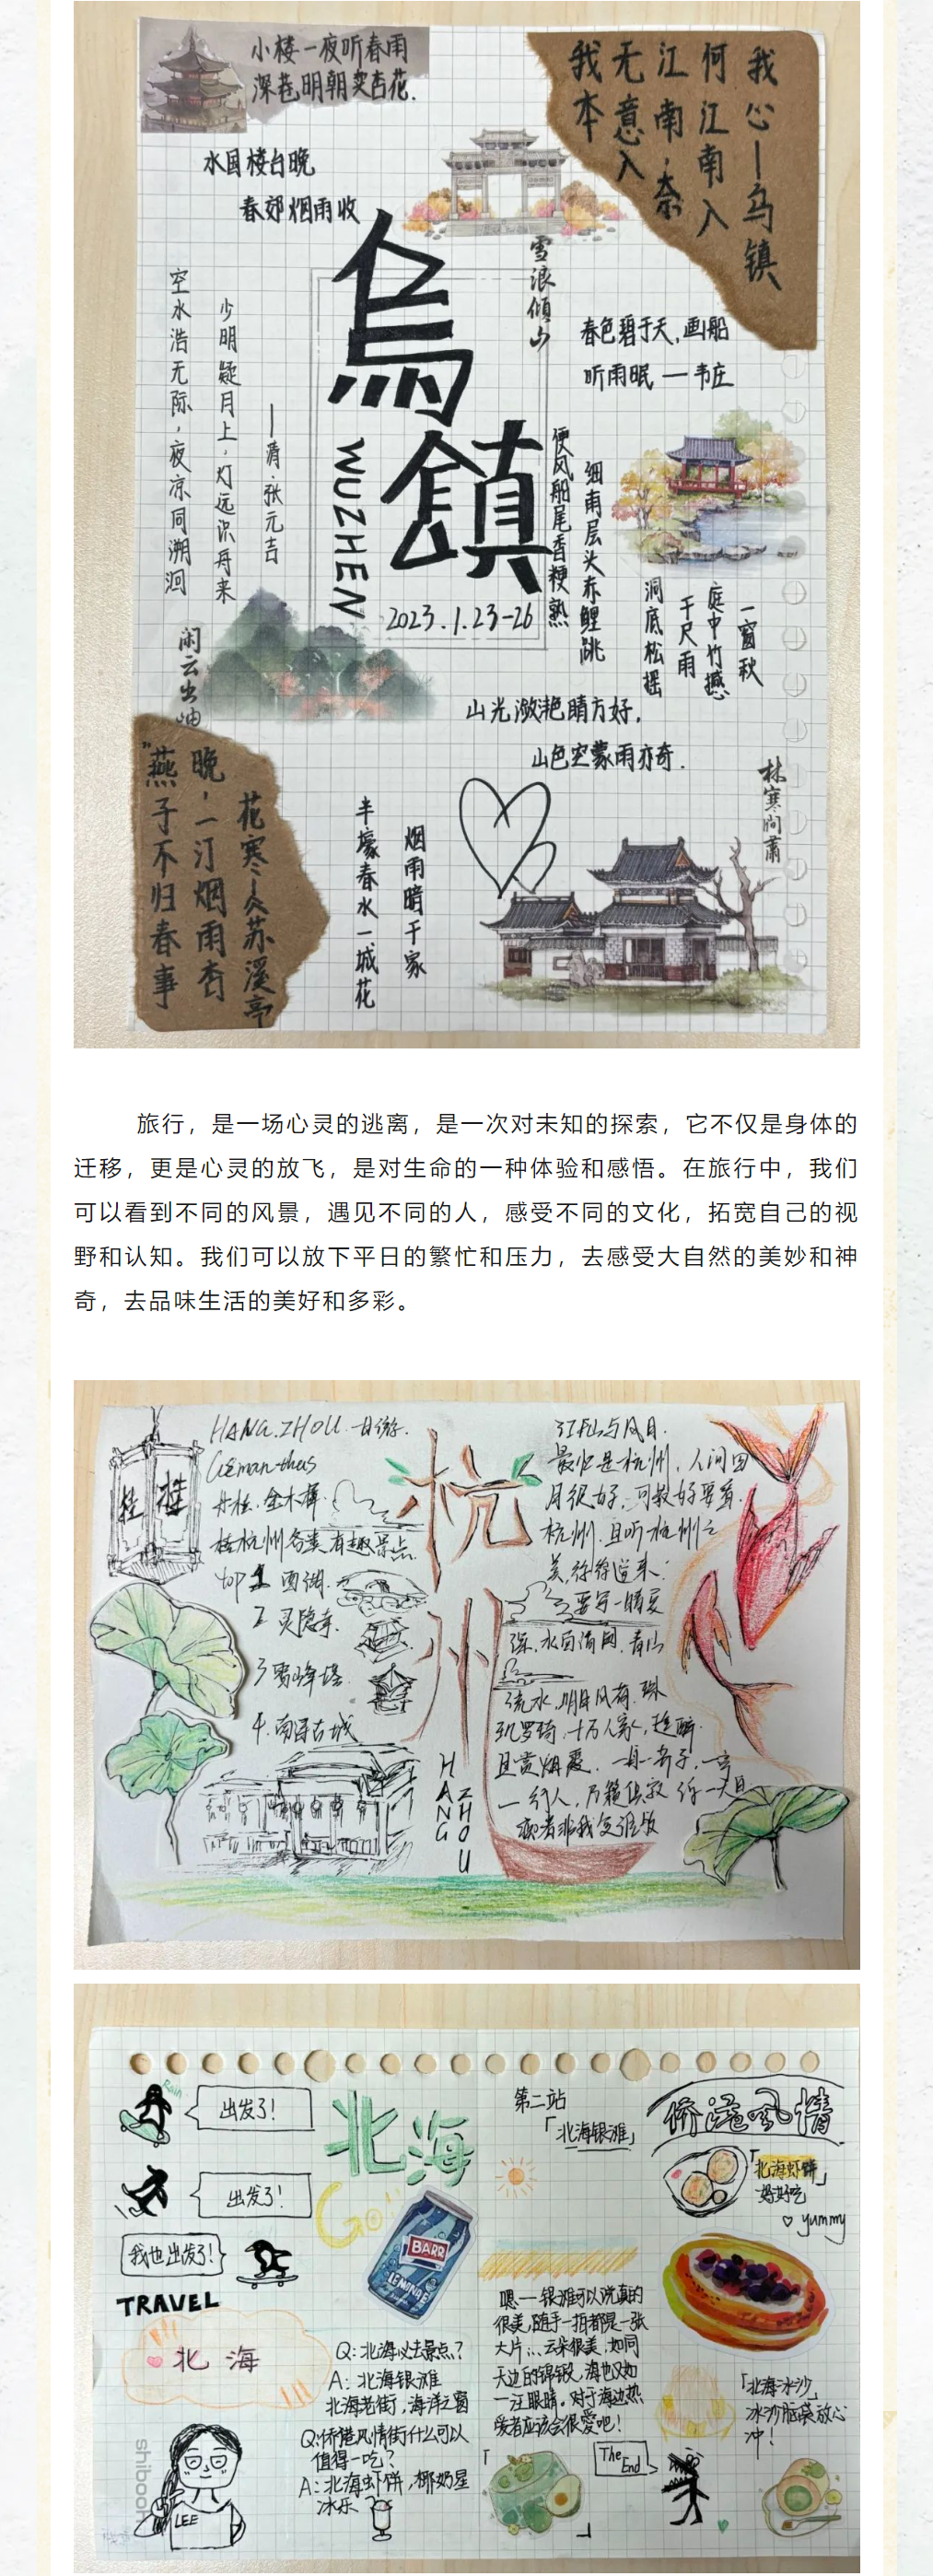 小楼一夜听春雨
深巷明朝卖杏花.
水国楼台晚
春郊烟雨收
我本
无意入
江南,奈
何江南入
我心—乌镇
雪浪倾山
烏鎮
WUZHEN
2023.1.23-26
空水浩无际,夜凉同溯洄
少明疑月上,灯远识舟来
——清.张元吉
春色碧于天,画船
听雨眠 — 韦庄
便风船尾香粳熟
细雨层头赤鲤跳
洞底松摇
千尺雨
庭中竹撼
一窗秋
闲云出岫
山光潋滟晴方好,
山色空蒙雨亦奇.
林寒涧肃
"燕子不归春事
晚,一汀烟雨杏
花寒—人苏溪亭
半壕春水一城花
烟雨暗千家
旅行，是一场心灵的逃离，是一次对未知的探索，它不仅是身体的
迁移，更是心灵的放飞，是对生命的一种体验和感悟。在旅行中，我们
可以看到不同的风景，遇见不同的人，感受不同的文化，拓宽自己的视
野和认知。我们可以放下平日的繁忙和压力，去感受大自然的美妙和神
奇，去品味生活的美好和多彩。
HANG.ZHOU
丹桂.金木犀.
杭州各类有趣景点.
top 1 西湖.
2 灵隐寺.
3 雷峰塔.
4.南浔古城
桂 桂
杭州
HANG
ZHOU
最忆是杭州.人间四
月很好.可数好要看.
杭州.且听杭州之
美,徐徐道来.
流水,明月风荷.珠
玑罗琦.十万人家,
且赏烟霞.
Rain
出发了!
出发了!
我也出发了!
TRAVEL
北 海
LEE
shiboon
北海
Go!
BARR
LEMONADE
Q:北海必去景点?
A:北海银滩
北海老街,海洋之窗
Q:侨港风情街什么可以
值得一吃?
A:北海虾饼,椰奶星
冰乐
第二站
「北海银滩」
嗯——银滩可以说真的
很美,随手一拍都是一张
大片...云朵很美,如同
天边的锦缎,海也又如
一汪眼睛。对于海边热
爱者应该会很爱吧!
The End
侨港风情
「北海虾饼」
好好吃
♡ yummy
「北海冰沙」
冰沙脑袋放心
冲!